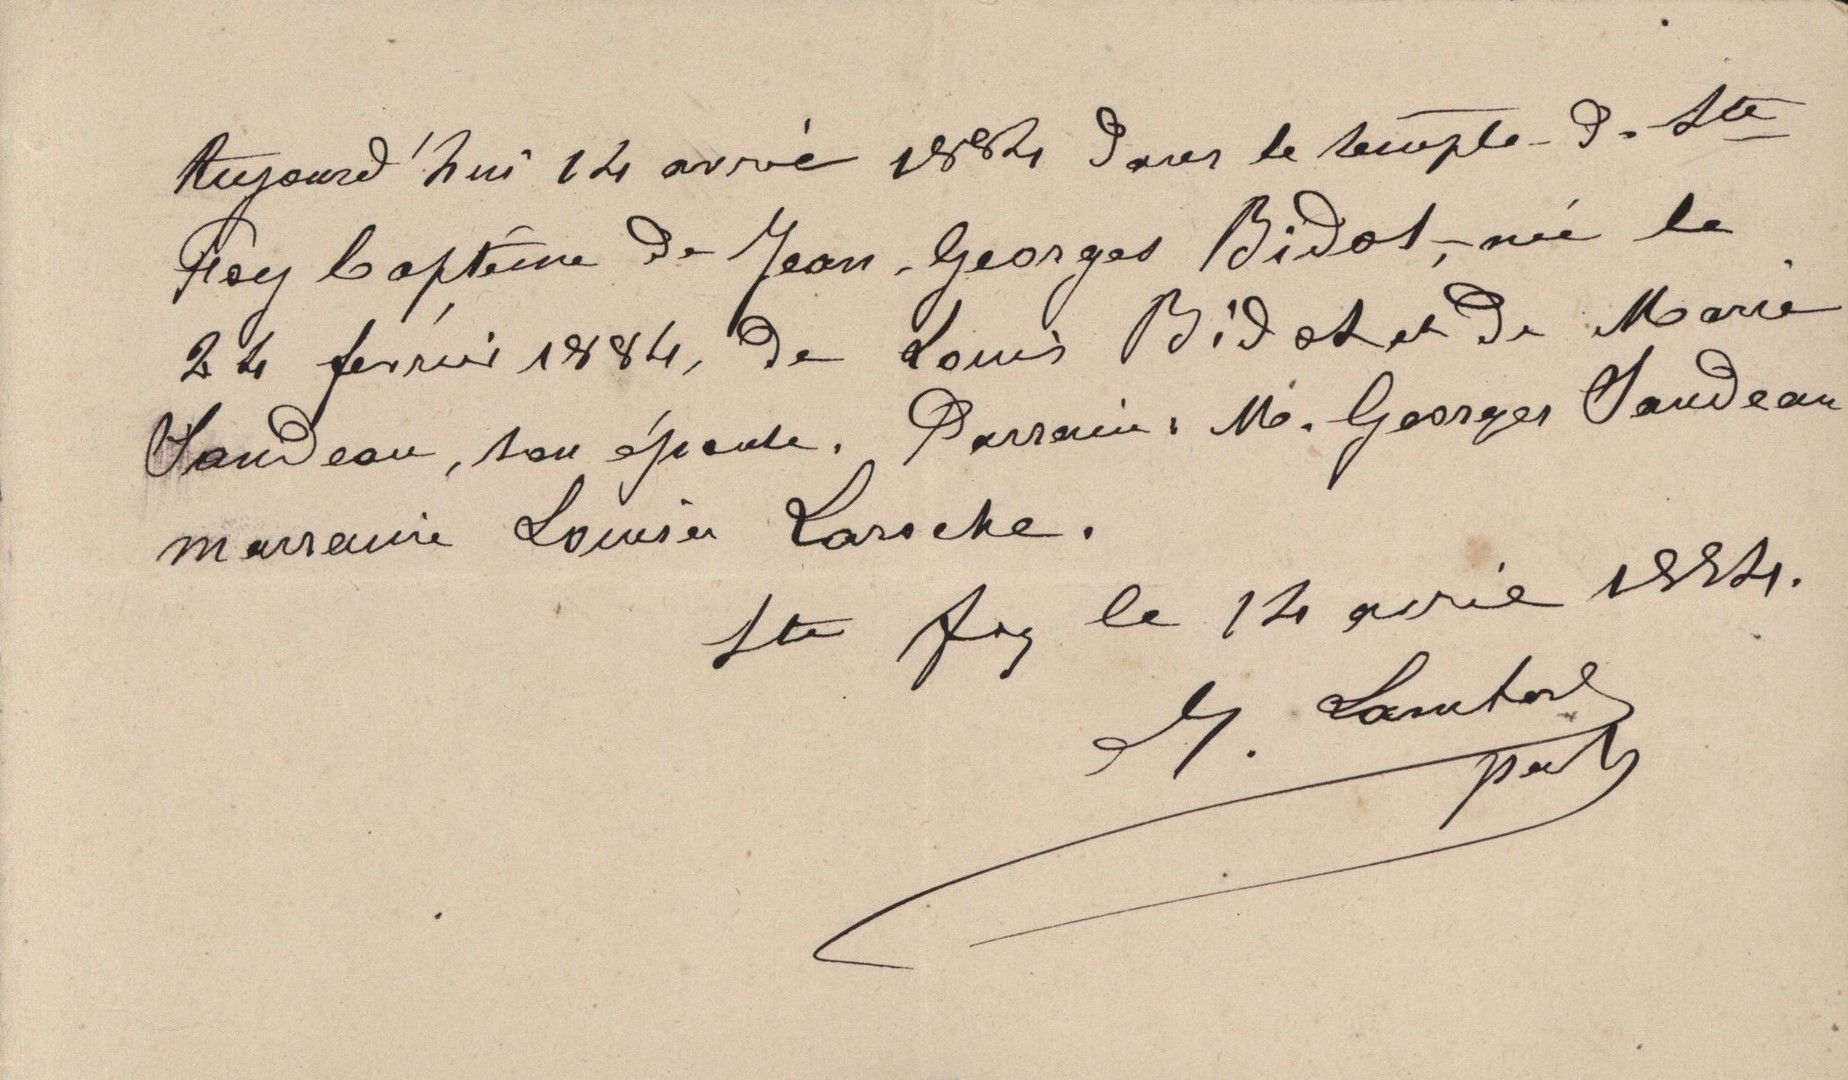 Aujourd'hui 14 avril 1884 dans le temple de Ste
Foy baptême de Jean-Georges Bidot, né le
24 février 1884, de Louis Bidot et de Marie
Jandeau, son épouse. Parrain: M. Georges Jandeau
marraine Louisa Laroche.
Ste Foy le 14 avril 1884.
Lambert
past